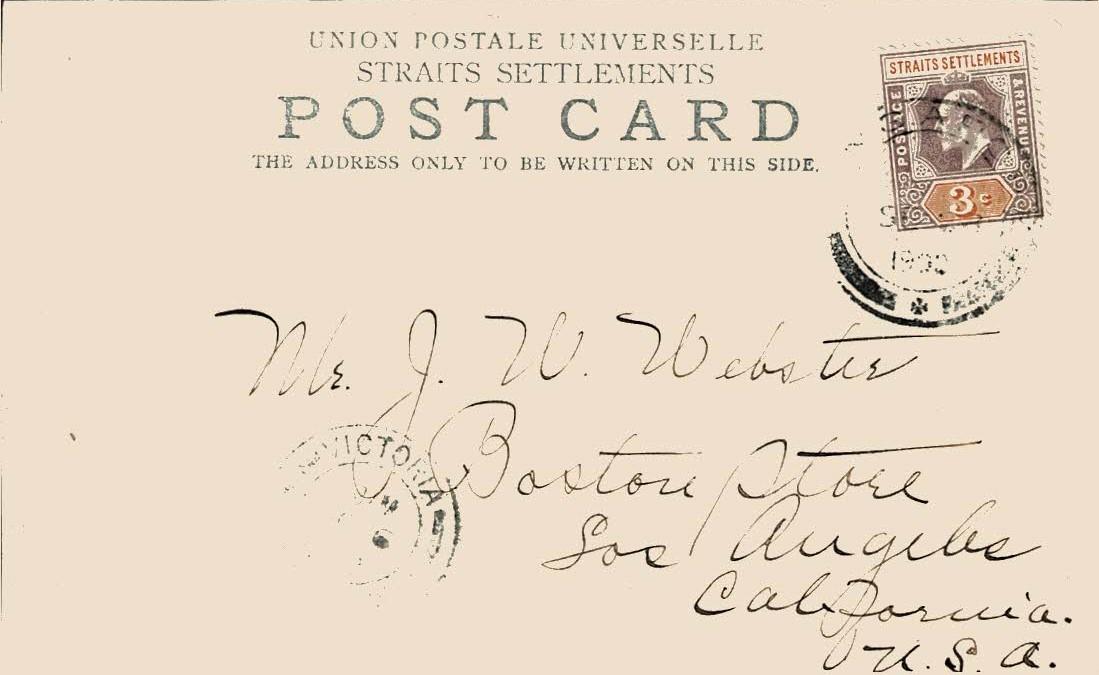 UNION POSTALE UNIVERSELLE
STRAITS SETTLEMENTS
POST CARD
THE ADDRESS ONLY TO BE WRITTEN ON THIS SIDE.
STRAITS SETTLEMENTS
POSTAGE & REVENUE
3c
Mr. J. W. Webster
Boston Store
Los Angeles
California.
U.S.A.
VICTORIA